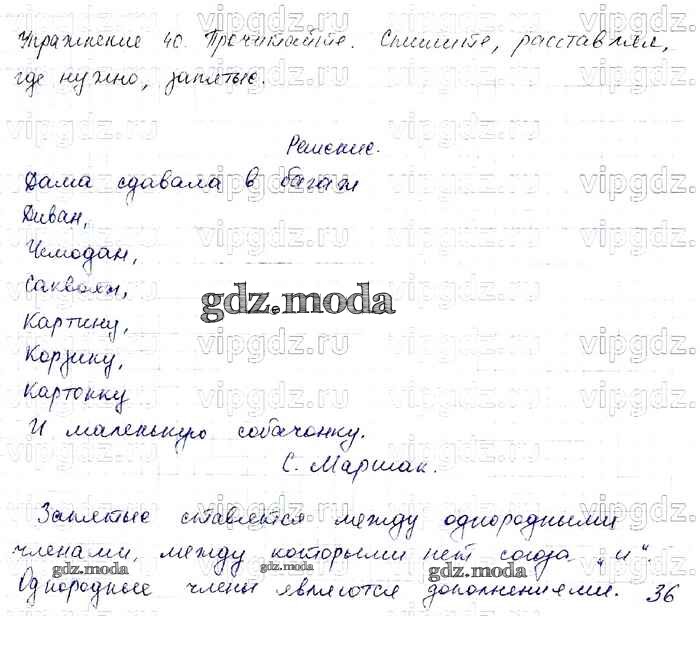 Упражнение 40. Прочитайте. Спишите, расставляя,
где нужно, запятые.
Решение.
Дама сдавала в багаж
Диван,
Чемодан,
Саквояж,
Картину,
Корзину,
Картонку
И маленькую собачонку.
С. Маршак.
Запятые ставятся между однородными
членами, между которыми нет союза „и“.
Однородные члены являются дополнениями. 36
gdz.moda
gdz.moda
gdz.moda
gdz.moda
vipgdz.ru